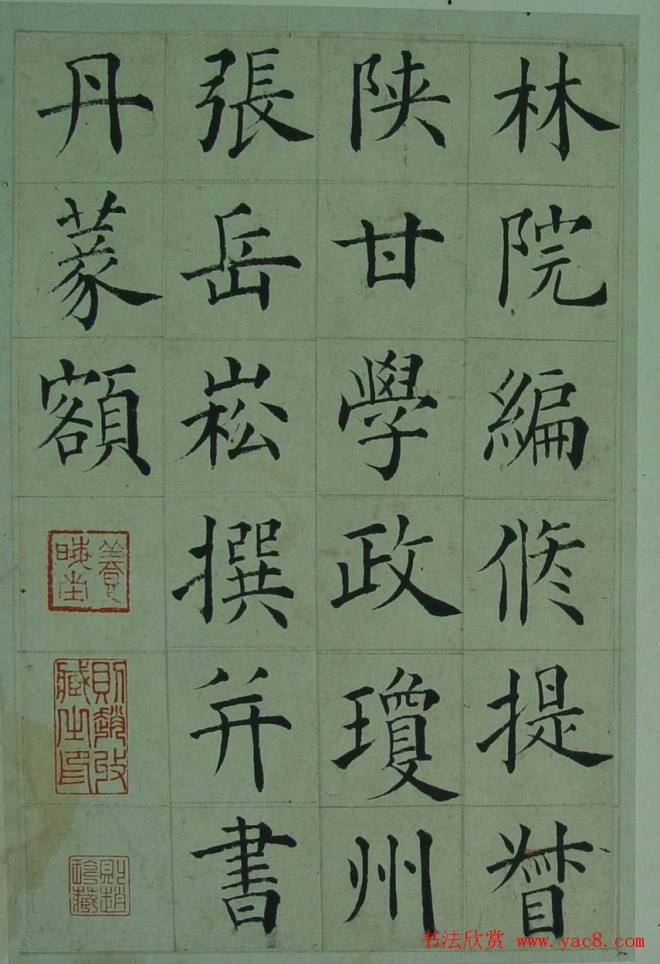 林院編修提督
陝甘學政瓊州
張岳崧撰并書
丹篆額
书法欣赏 www.yac8.com